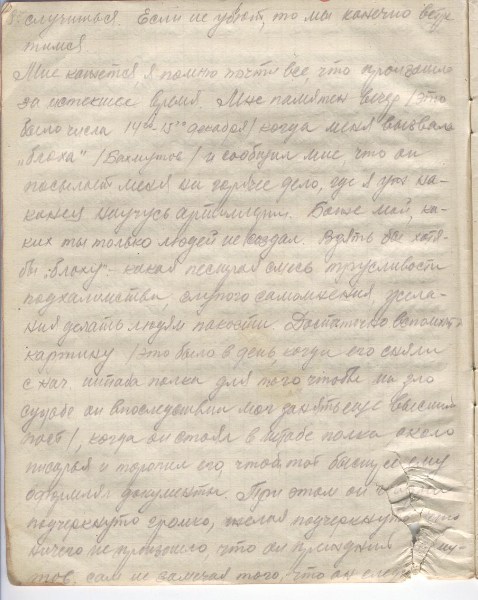 случиться. Если не убьют, то мы конечно встре
тимся
Мне кажется, я помню почти все, что произошло
за истекшее время. Мне памятен вечер /это
было числа 14го-15го декабря/ когда меня вызвал
„Блоха" /Бахмутов/ и сообщил мне, что он
посылает меня на горячее дело, где я уж на-
конец научусь артиллерии. Боже мой, ка-
ких ты только людей не создал. Взять бы хотя-
бы „Блоху": какая пестрая смесь трусливости
подхалимства, глупого самомнения, жела-
ния делать людям пакости. Достаточно вспомнить
картину /это было в день, когда его сняли
с нач. штаба полка для того чтобы на зло
судьбе он впоследствии мог занять еще высший
пост/, когда он стоял в штабе полка около
писаря и торопил его, чтоб тот быстрей ему
оформлял документы. При этом он
подчеркнуто громко, желая подчеркнуть
ничего не произошло, что он
тов, сам не замечая того, что он